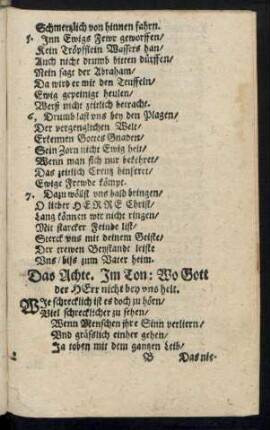 Schmertzlich von hinnen fahrn.
5. Inn Ewigs Fewr geworffen/
Kein Tröpfflein Wassers han/
Auch nicht drumb bitten dürffen/
Nein sagt der Abraham/
Da wird er mit den Teuffeln/
Ewig gepeiniget heulen/
Werst nicht zeitlich betracht.
6. Drumb last vns bey den Plagen/
Der vergenglichen Welt/
Erkennen Gottes Gnaden/
Sein Zorn nicht Ewig helt/
Wenn man sich nur bekehret/
Das zeitlich Creutz hinfaret/
Ewige Frewde kömpt.
7. Dazu wöllst vns bald bringen/
O lieber HERRE Christ/
Lang können wir nicht ringen/
Mit starcker Feinde list/
Sterck vns mit deinem Geiste/
Der trewen Beystande leiste
Vns/ biß zum Vater heim.
Das Achte. Im Ton: Wo Gott
der HErr nicht bey vns helt.
WJe schrecklich ist es doch zu hörn/
Viel schrecklicher zu sehen/
Wenn Menschen jhre Sinn verliern/
Vnd gräßlich einher gehen/
Ja toben mit dem gantzen Leib/
B Das nie-